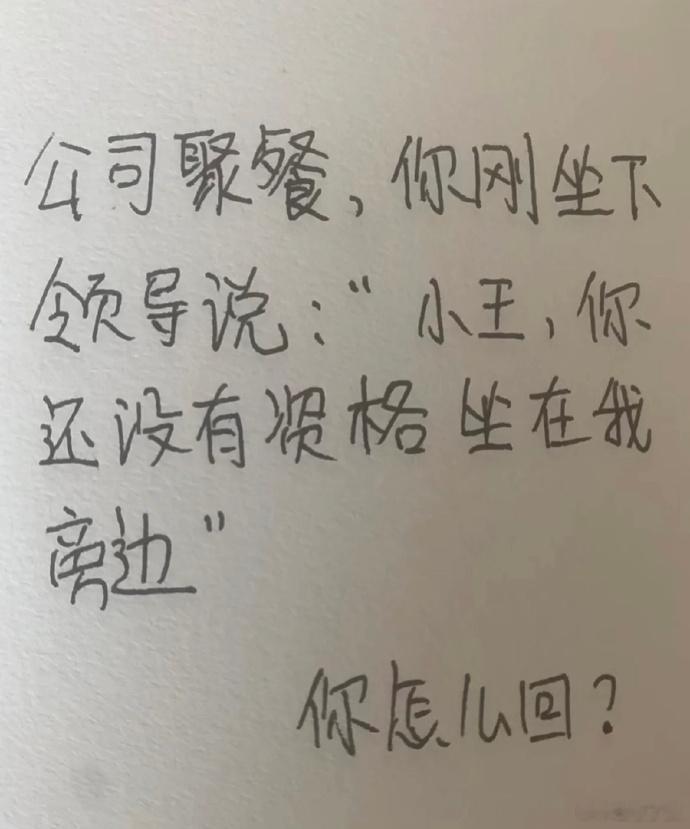 公司聚餐,你刚坐下
领导说:“小王,你
还没有资格坐在我
旁边”
你怎么回?